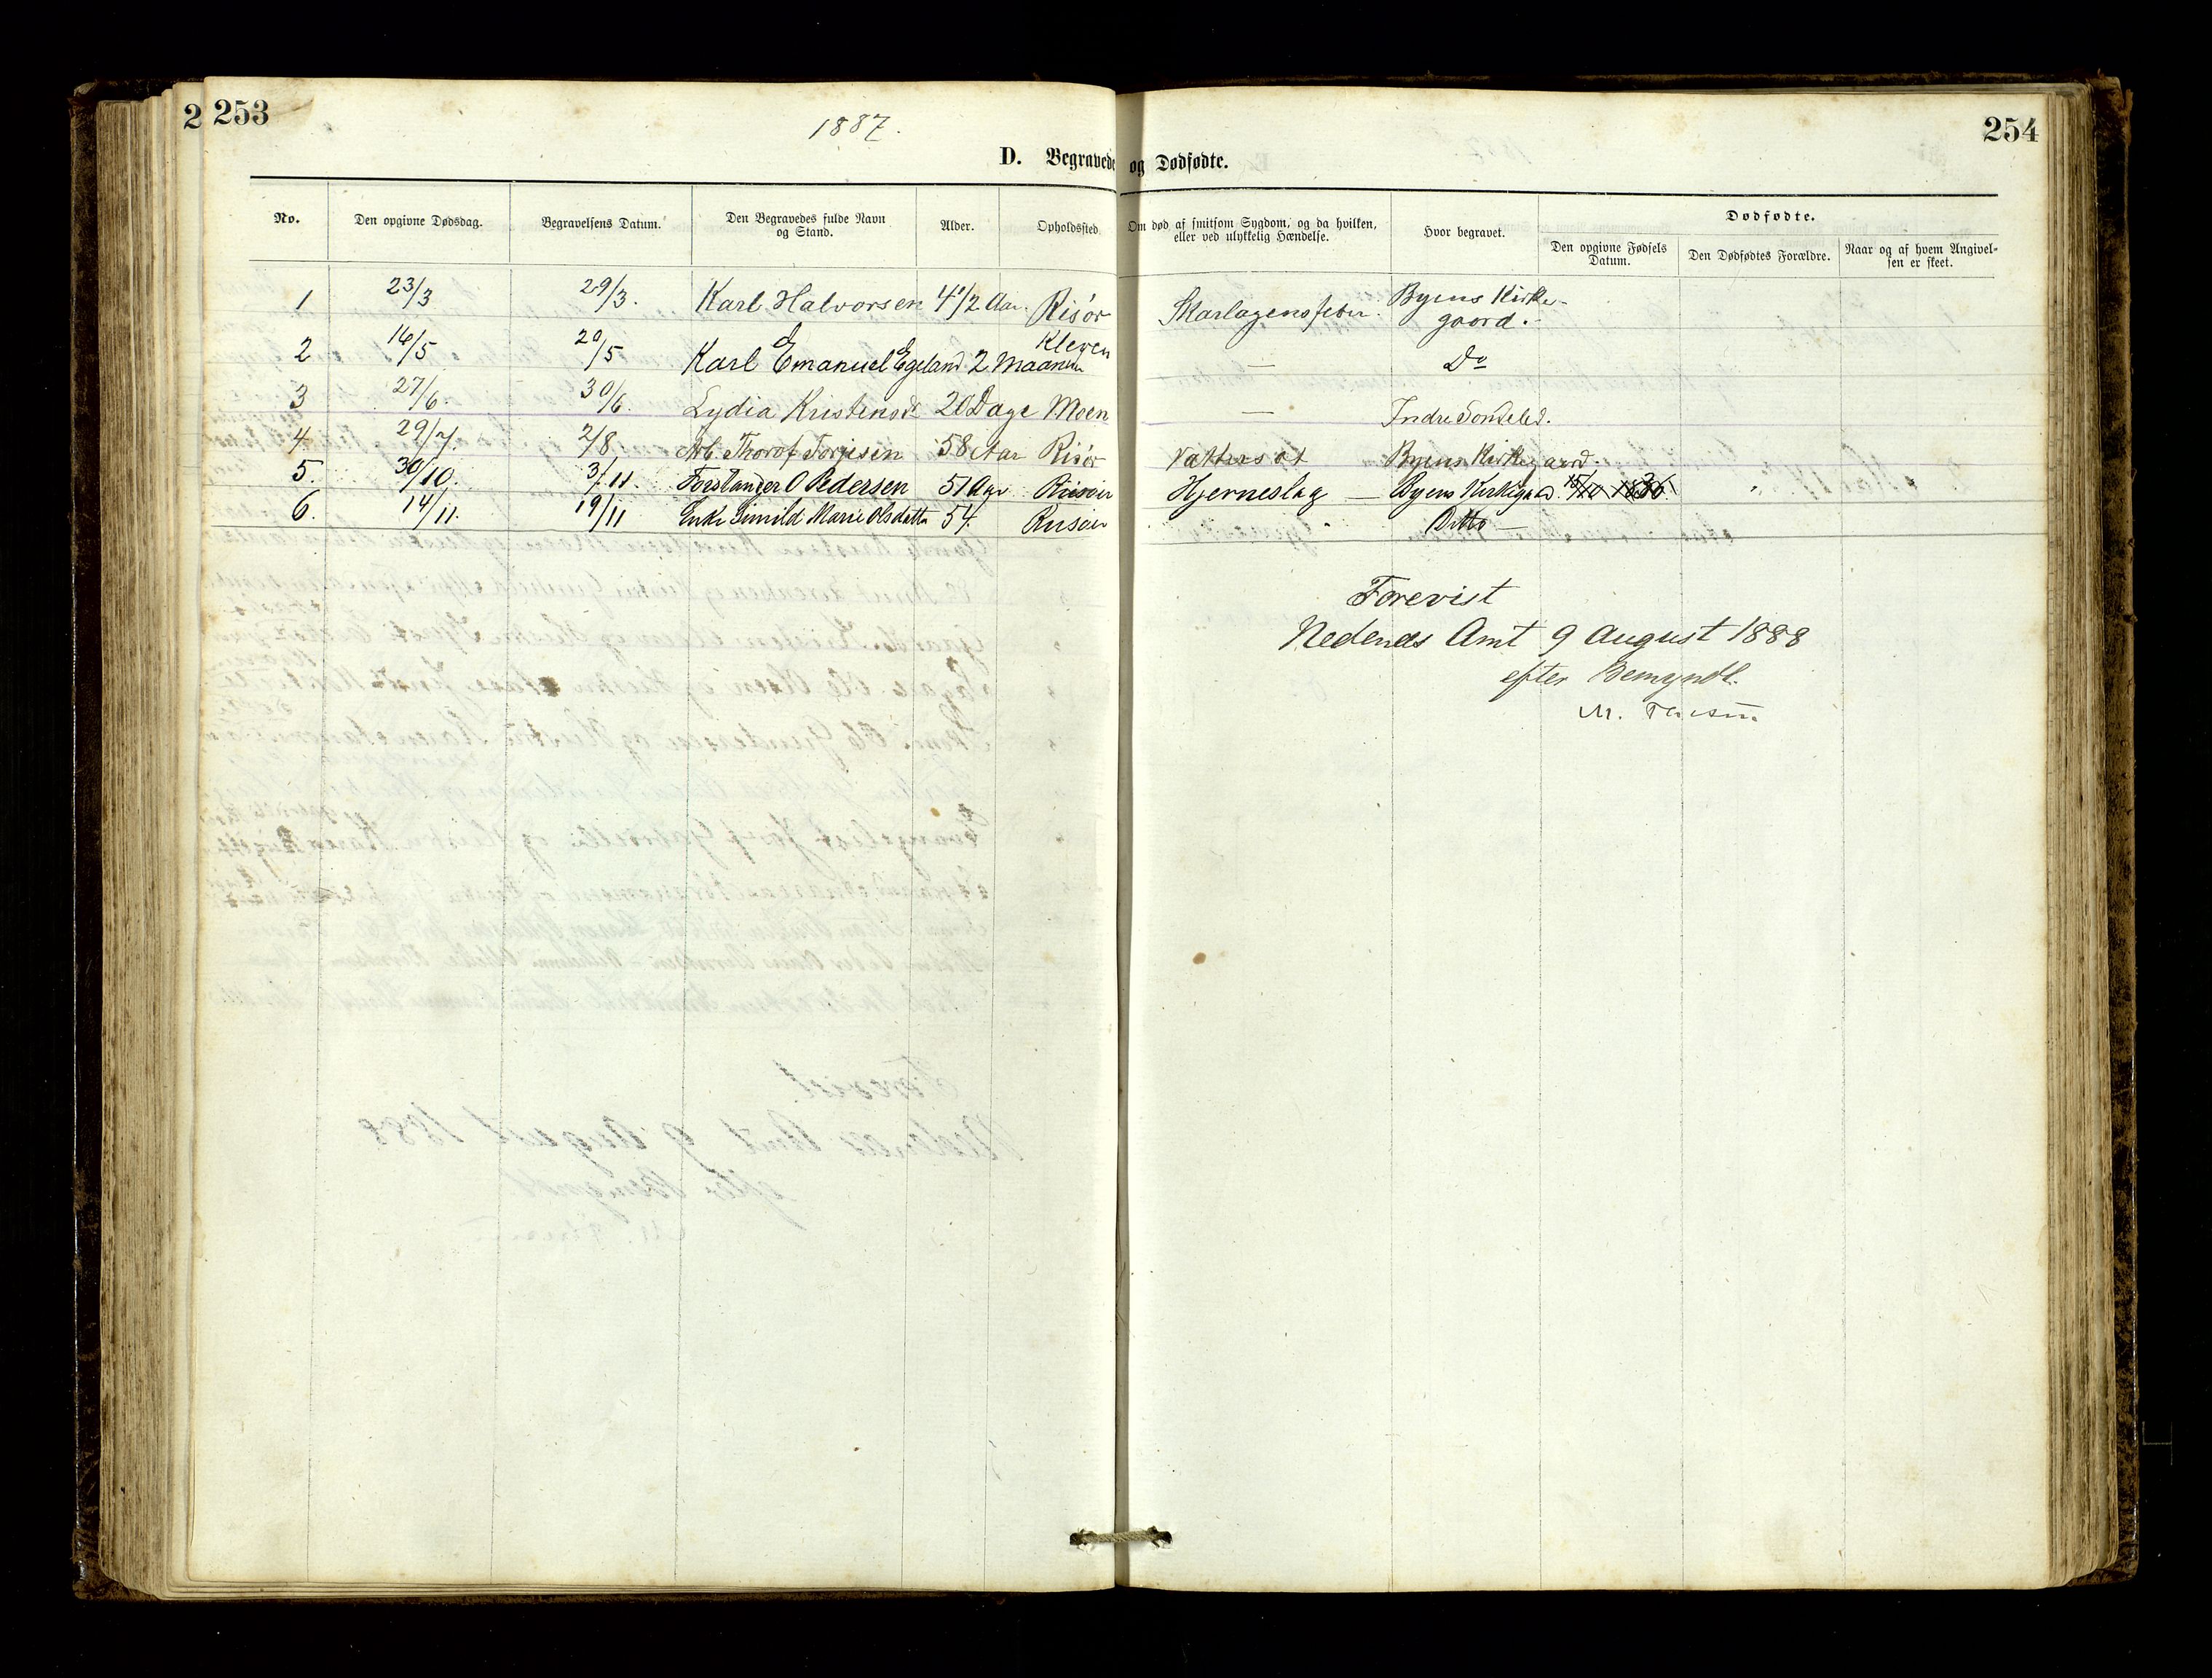 2 253
1887.
254
D. Begravede og Dødfødte.
No. Den opgivne Dødsdag. Begravelsens Datum. Den Begravedes fulde Navn og Stand. Alder. Opholdssted Om død af smitsom Sygdom, og da hvilken, eller ved ulykkelig Hændelse. Hvor begravet. Dødfødte. Den opgivne Fødsels Datum. Den Dødfødtes Forældre. Naar og af hvem Angivelsen er skeet.
1 23/3 29/3. Karl Halvorsen 4 1/2 Aar. Risør Skarlagensfeber. Byens Kirkegaard.
2 16/5 20/5 Karl Emanuel Egeland 2 Maaneder Kleven — Do
3 27/6. 30/6. Lydia 20 Dage Moen — Indre Søndeled.
4 29/7. 2/8. Arb. Thorof Torjusen 58 Aar Risør Vattersot Byens Kirkegaard.
5. 30/10. 3/11. Forstander O Pedersen 51 Aar Riisøer Hjerneslag — Byens Kirkegaard. 15/10 1836.
6. 14/11. 19/11 Enke Marie Olsdatter 54. Riisøer Ditto —
Forevist
Nedenes Amt 9 August 1888
efter Bemyndl.
M.